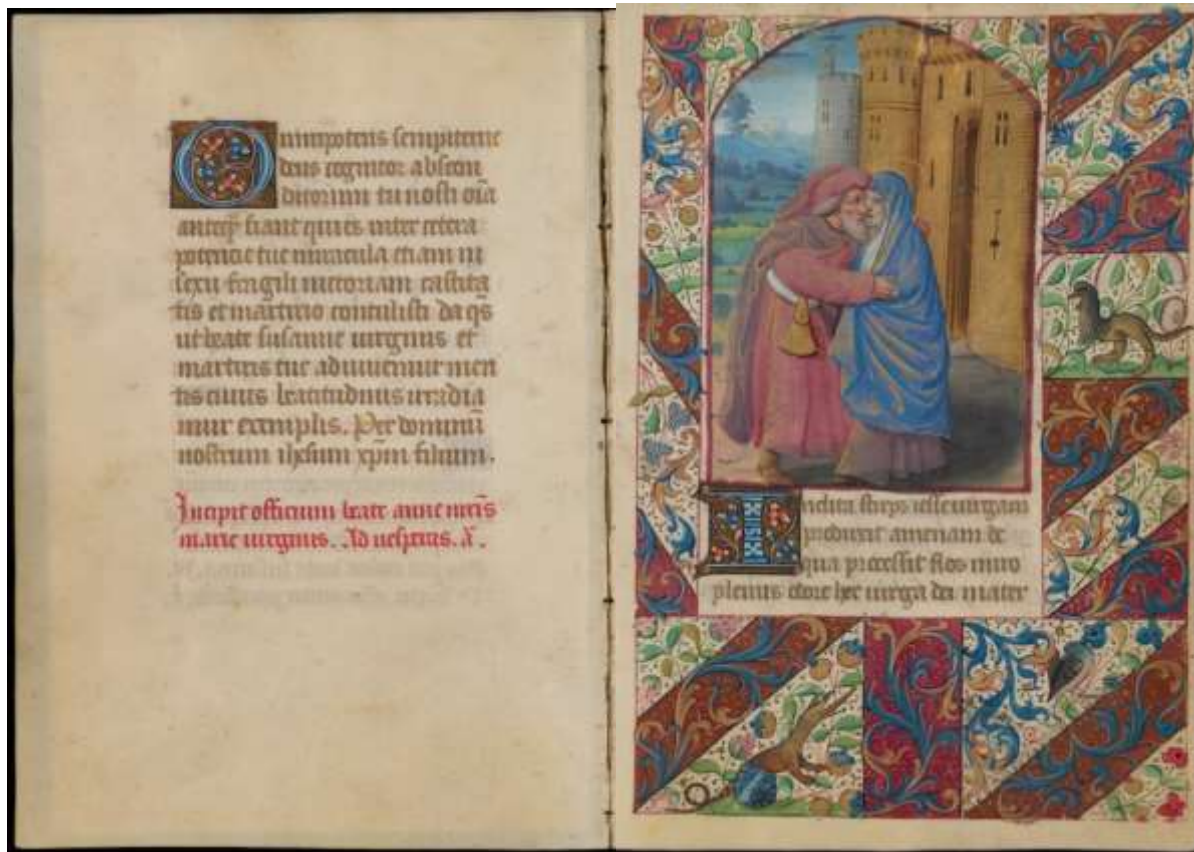 Omnipotens sempiterne
deus cognitor abscon
ditorum tu nosti oīa
anteq̄ fiant qui es inter cetera
potencie tue miracula etiam in
sexu fragili victoriam castita
tis et martirio contulisti da q̄s
ut beate susanne virginis et
martiris tue adiuvemur meri
tis cuius beatitudinis irradia
mur exemplis. Per dominū
nostrum ihesum xp̄m filium.
Incipit officium beate anne mr̄is
marie virginis. Ad vesperas. ā.
Inclita stirps iesse virgam
produxit amenam de
qua processit flos miro
plenus odore hec virga dei mater